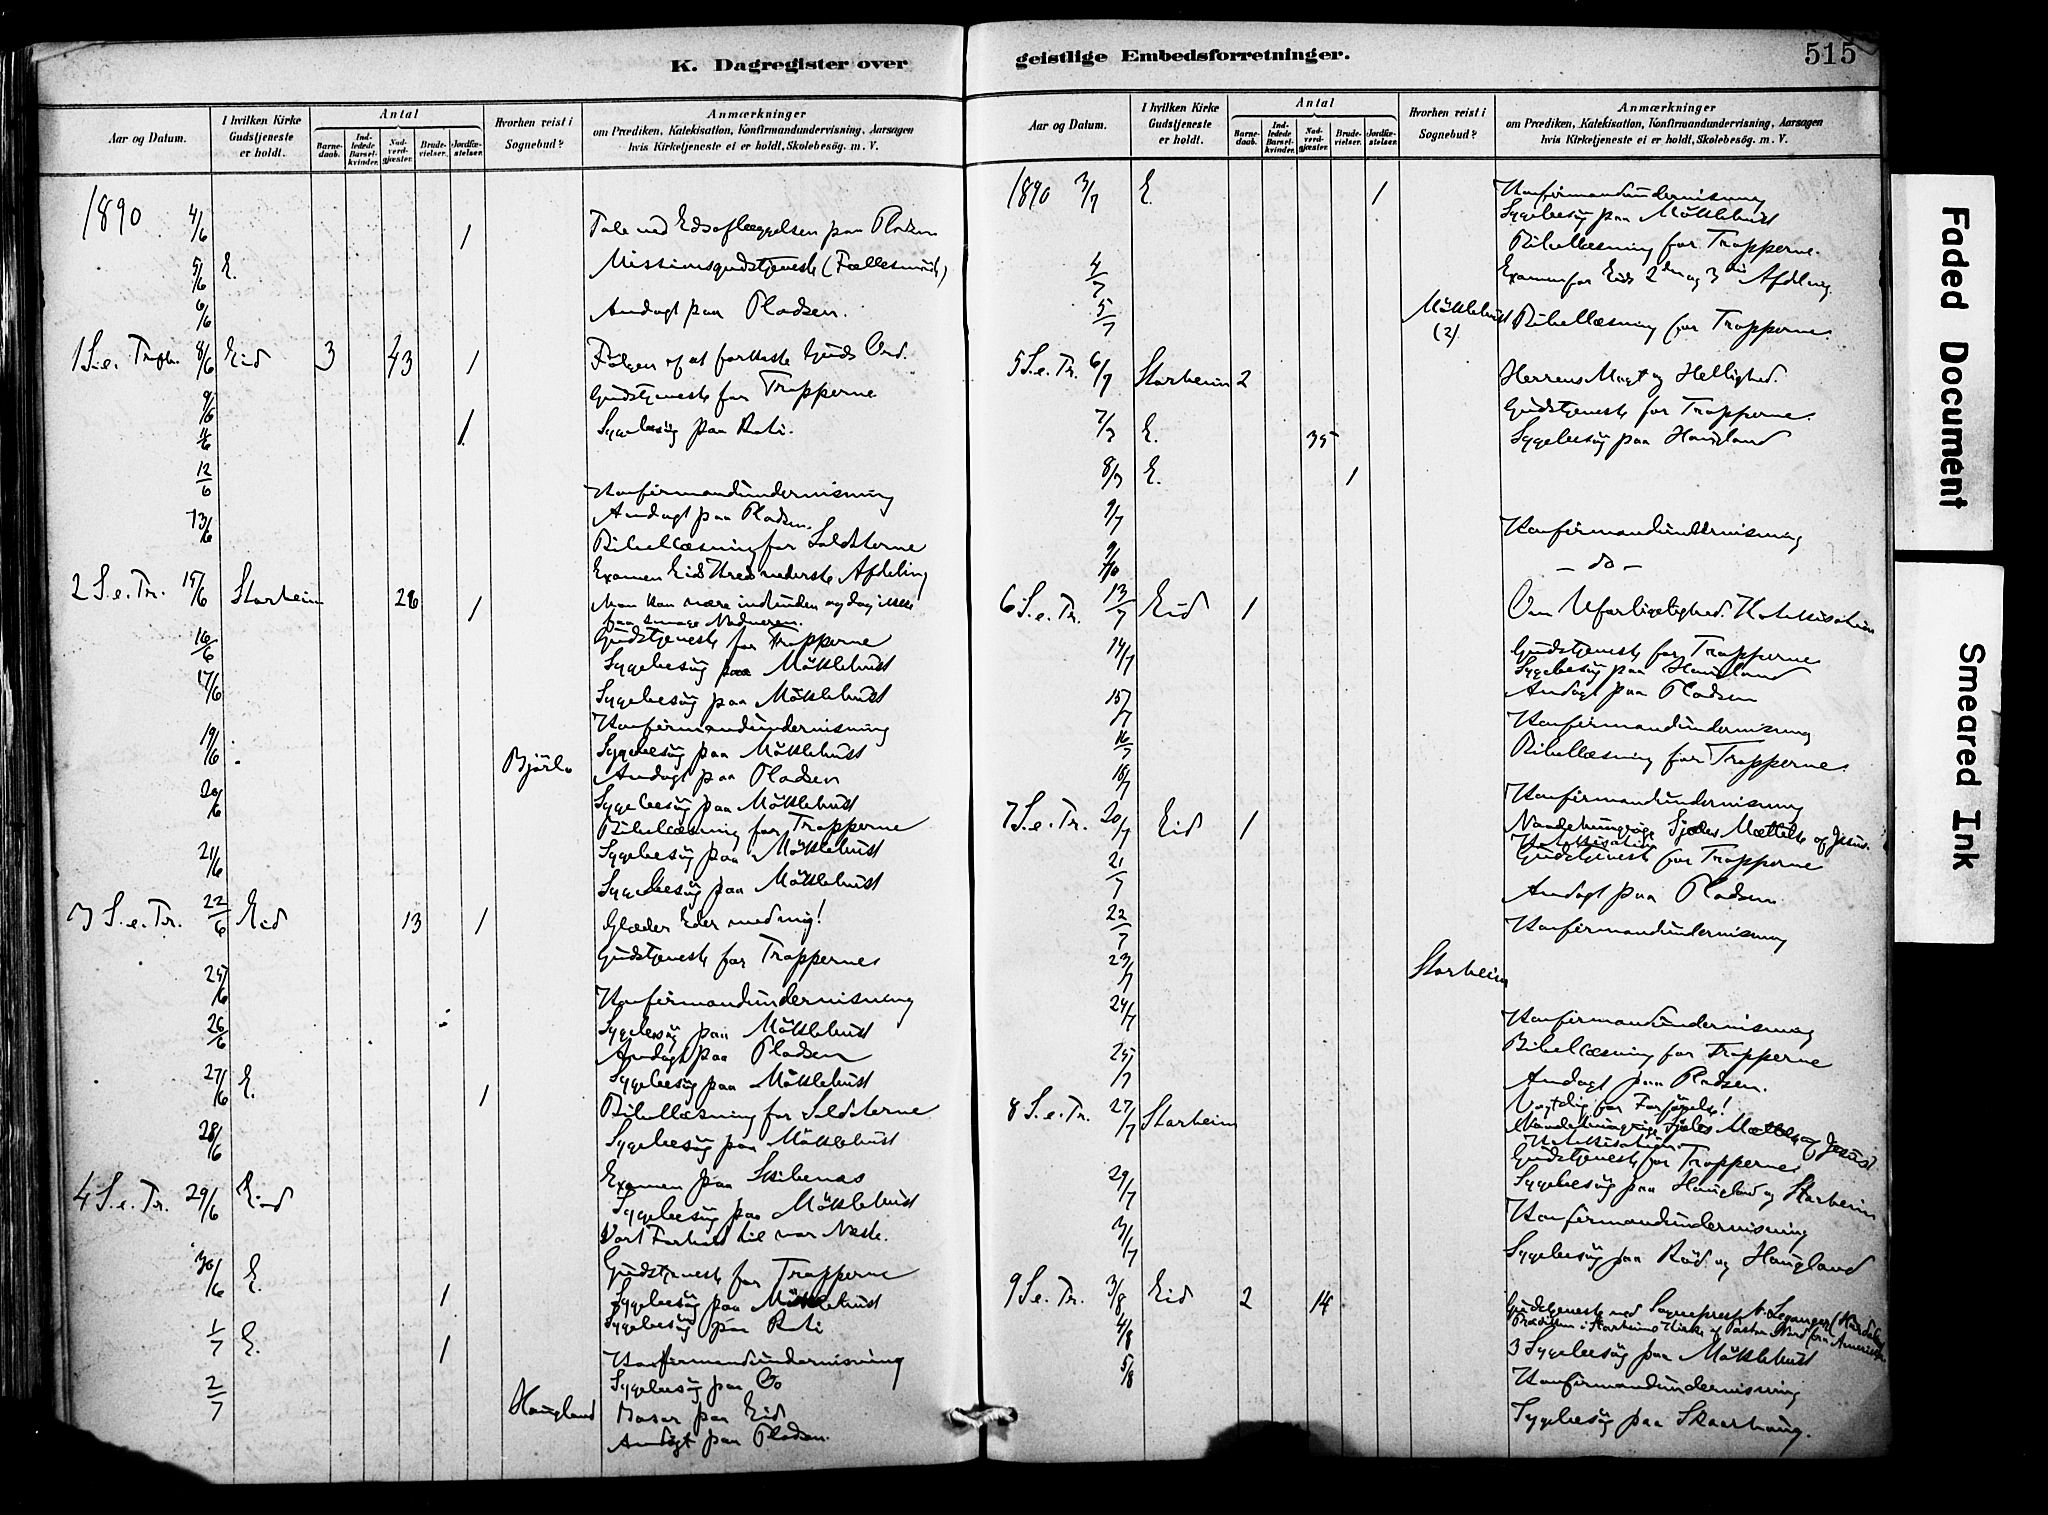 K. Dagregister over
Aar og Datum.
I hvilken Kirke Gudstjeneste er holdt.
Antal
Barnedaab.
Indledede Barselkvinder.
Nadverdgjæster.
Brudevielser.
Jordfæstelser.
Hvorhen reist i Sognebud?
Anmærkninger
om Prædiken, Katekisation, Konfirmandundervisning, Aarsagen
hvis Kirketjeneste ei er holdt, Skolebesög. m. V.
1890 4/6 1 Tale ved Edsaflæggelsen paa Pladsen
5/6 E. Missionsgudstjeneste
6/6 Andagt paa Pladsen.
1 S. e. Trefh. 8/6 Eid 3 43 1 Fölgen af at forkaste Guds Ord.
Gudstjeneste for Tropperne
9/6 Sygebesög paa Rati.
1
12/6
Konfirmandundervisning
13/6 Andagt paa Pladsen.
Bibellæsning for Soldaterne
Examen Eids Kreds nederste Afdeling
2 S. e. Tr. 15/6 Starheim 26 1 Man kan være indbuden og dog ikke
faa smage Nadveren.
16/6 Gudstjeneste for Tropperne
Sygebesög paa Möklebust
17/6 Sygebesög paa Möklebust
Konfirmandundervisning
19/6 Björlo Sygebesög paa Möklebust
Andagt paa Pladsen
20/6 Sygebesög paa Möklebust
Bibellæsning for Tropperne
21/6 Sygebesög paa Möklebust
Sygebesög paa Möklebust
3 S. e. Tr. 22/6 Eid 13 1 Glæder Eder med mig!
Gudstjeneste for Tropperne
25/6 Konfirmandundervisning
26/6 Sygebesög paa Möklebust
Andagt paa Pladsen
27/6 E. 1 Sygebesög paa Möklebust
Bibellæsning for Soldaterne
28/6 Sygebesög paa Möklebust
Examen paa Skibenæs
4 S. e. Tr. 29/6 Eid Sygebesög paa Möklebust
Vort Forhold til vor Næste.
30/6 E. 1 Gudstjeneste for Tropperne
Sygebesög paa Möklebust
Sygebesög paa Rati
1/7 E. 1 Konfirmandundervisning
Sygebesög paa Os
2/7 Haugland Basar paa Eid
Andagt paa Pladsen.
geistlige Embedsforretninger.
515
Aar og Datum.
I hvilken Kirke Gudstjeneste er holdt.
Antal
Barnedaab.
Indledede Barselkvinder.
Nadverdgjæster.
Brudevielser.
Jordfæstelser.
Hvorhen reist i Sognebud?
Anmærkninger
om Prædiken, Katekisation, Konfirmandundervisning, Aarsagen
hvis Kirketjeneste ei er holdt, Skolebesög. m. V.
1890 3/7 E. 1 Konfirmandundervisning
Sygebesög paa Möklebust
Bibellæsning for Tropperne.
4/7 Examen for Eids 2den og 3die Afdeling.
5/7 Möklebust (2) Bibellæsning for Tropperne.
5 S. e. Tr. 6/7 Starheim 2 Herrens Magt og Hellighed.
Gudstjeneste for Tropperne.
7/7 E. 35 Sygebesög paa Haugland
8/7 E. 1
9/7 Konfirmandundervisning
— do —
6 S. e. Tr. 13/7 Eid 1 Om Uforligelighed. Katekisation
14/7 Gudstjeneste for Tropperne
Sygebesög paa Haugland
15/7 Andagt paa Pladsen
Konfirmandundervisning
16/7 Bibellæsning for Tropperne.
18/7 Konfirmandundervisning
7 S. e. Tr. 20/7 Eid 1 Naadehungrige Sjæles Mættelse af Jesus.
Katekisation
21/7 Gudstjeneste for Tropperne
Andagt paa Pladsen
22/7 Konfirmandundervisning
23/7 Starheim
24/7 Konfirmandundervisning
Bibellæsning for Tropperne
25/7 Andagt paa Pladsen.
8 S. e. Tr. 27/7 Starheim
Naadehungrige Sjæles Mættelse af Jesus!
Katekisation
Gudstjeneste for Tropperne
29/7 Sygebesög paa Haugland og Starheim
Konfirmandundervisning
31/7 Sygebesög paa Röd og Haugland
9 S. e. Tr. 3/8 Eid 2 14 Gudstjeneste ved Sogneprest
Prædiken i Starheims Kirke af Pastor Nord fra Amerika
4/8 3 Sygebesög paa Möklebust
5/8 Konfirmandundervisning
Sygebesög paa Skaarhaug.
Faded Document
Smeared Ink